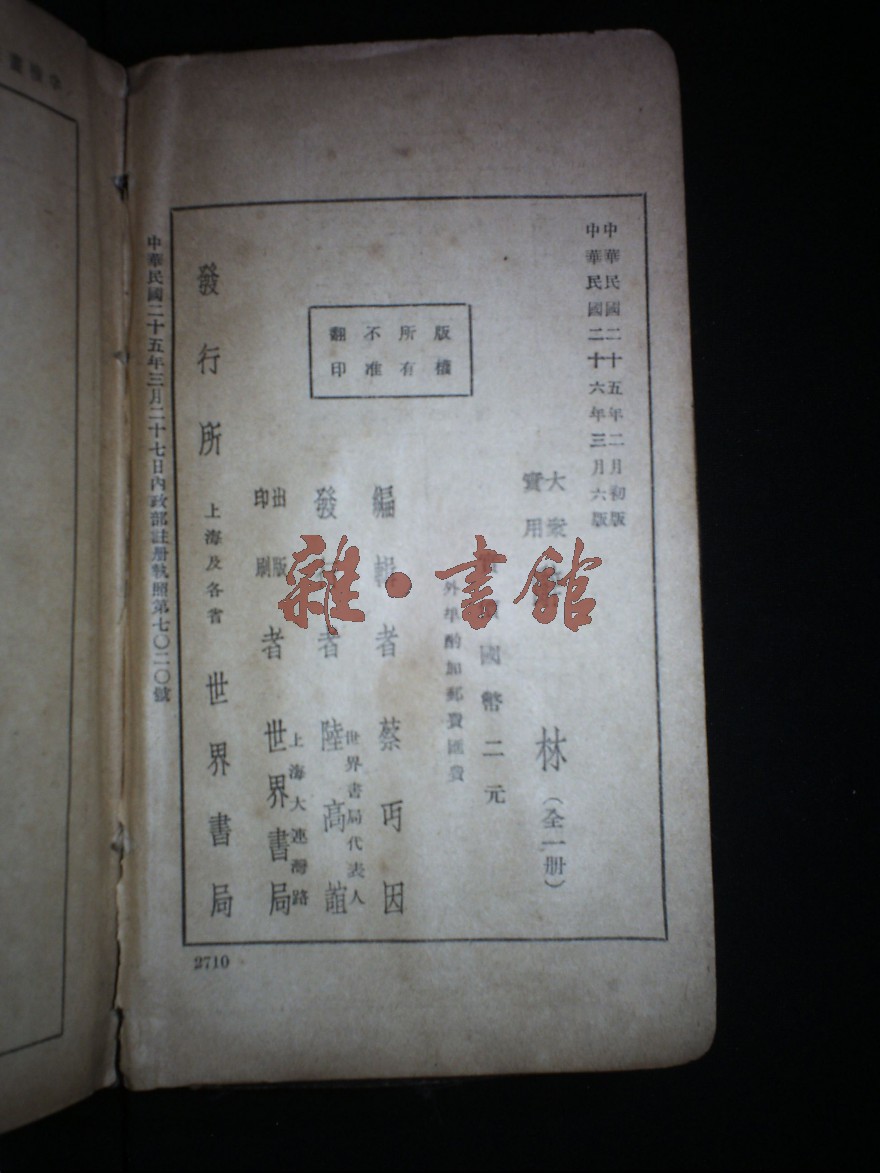 中華民國二十五年二月初版
中華民國二十六年三月六版
大衆
實用
林（全一册）
國幣二元
外埠酌加郵費匯費
版權
所有
不准
翻印
編輯者 蔡丏因
世界書局代表人
發行者 陸高誼
上海大連灣路
出版
印刷
者 世界書局
發行所 上海及各省 世界書局
中華民國二十五年三月二十七日內政部註册執照第七〇二〇號
2710
雜·書館